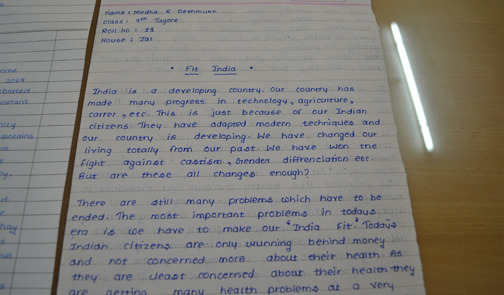 Name : Medha R. Deshmukh
Class : 9th Tagore
Roll no : 11
House : Jal
• Fit India •
India is a developing country. Our country has
made many progress in technology, agriculture,
carrer, etc. This is just because of our Indian
citizens. They have adapted modern techniques and
our country is developing. We have changed our
living totally from our past. We have won the
fight against castism, Gender diffrenciation etc.
But are these all changes enough?
There are still many problems which have to be
ended. The most important problems in todays
era is we have to make our "India Fit." Today's
Indian citizens are only running behind money
and not concerned more about their health. As
they are least concerned about their health they
are getting many health problems at a very
2019